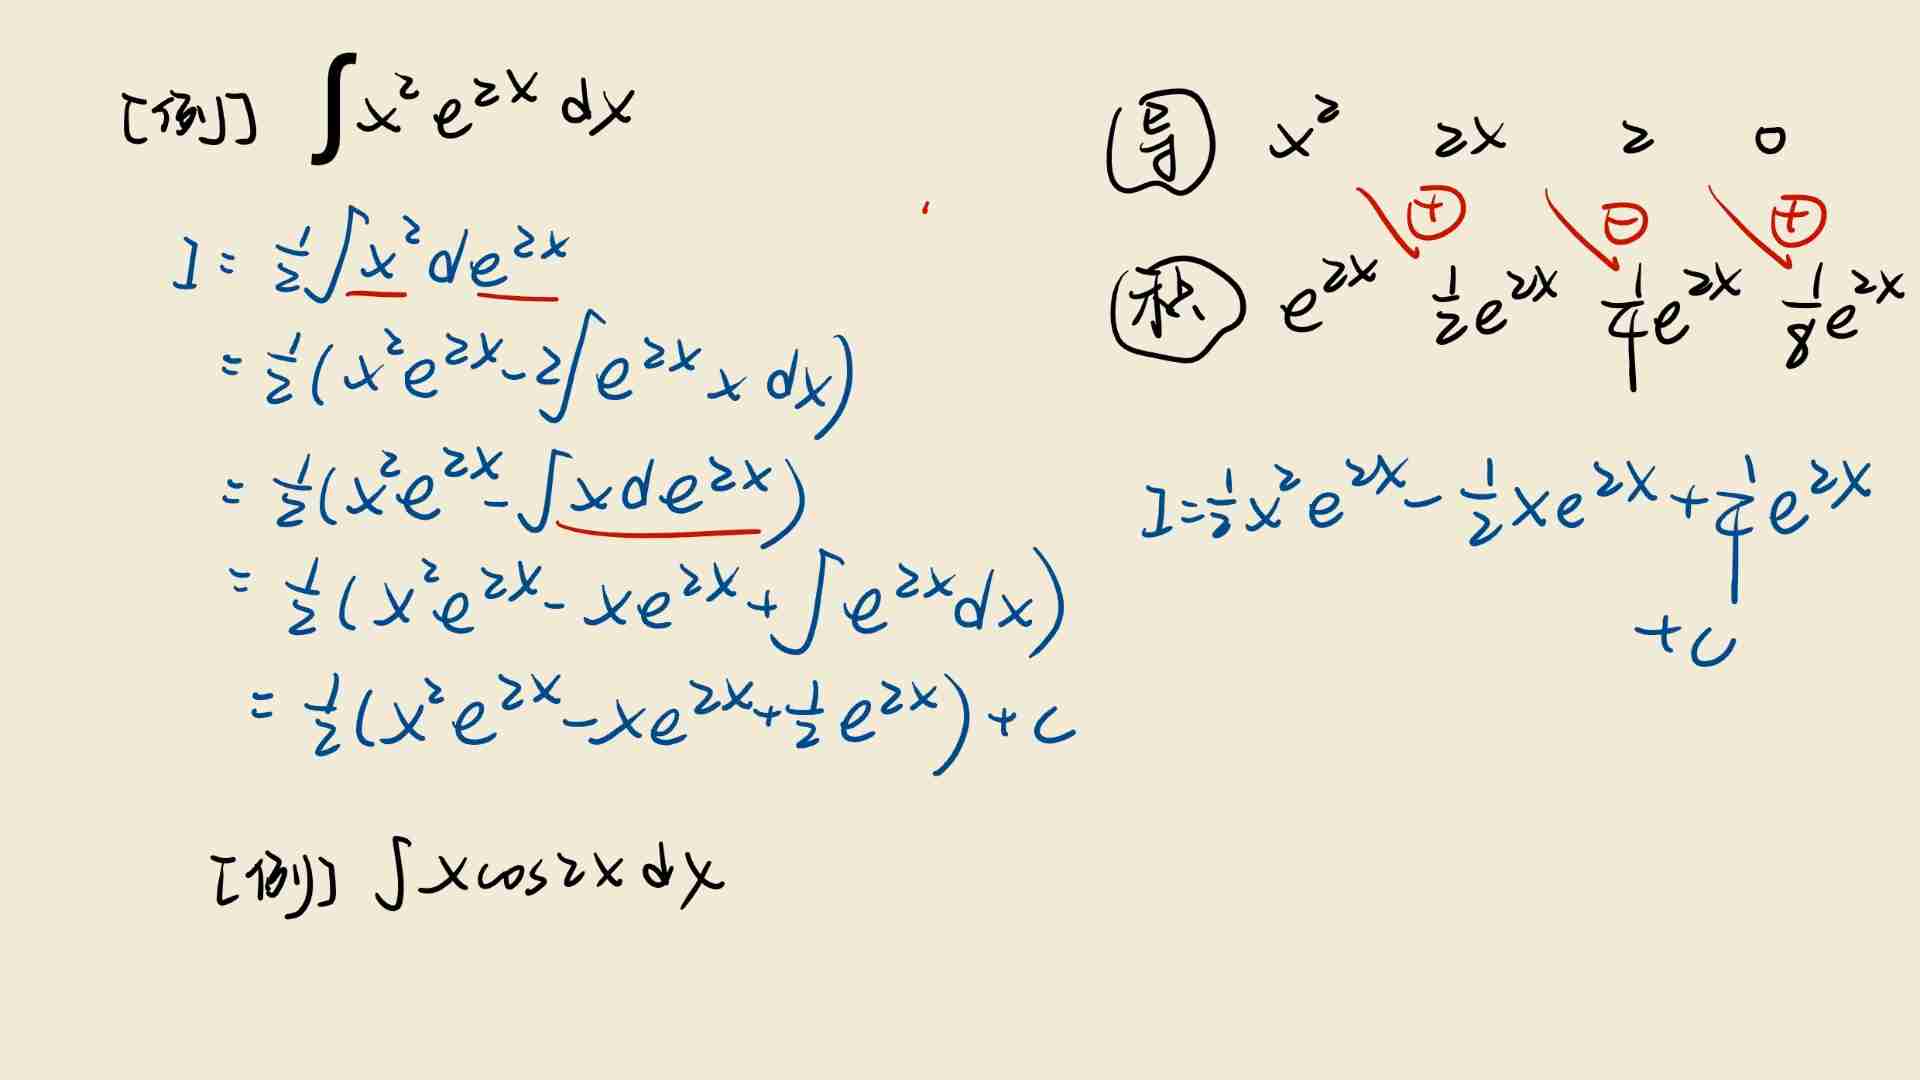 [例] ∫x²e^{2x}dx
I = ½∫x²de^{2x}
= ½(x²e^{2x} - 2∫e^{2x}x dx)
= ½(x²e^{2x} - ∫xde^{2x})
= ½(x²e^{2x} - xe^{2x} + ∫e^{2x}dx)
= ½(x²e^{2x} - xe^{2x} + ½e^{2x}) + C
[例] ∫xcos2x dx
导 x² 2x 2 0
+ - +
积 e^{2x} ½e^{2x} ¼e^{2x} ⅛e^{2x}
I = ½x²e^{2x} - ½xe^{2x} + ¼e^{2x}
+C